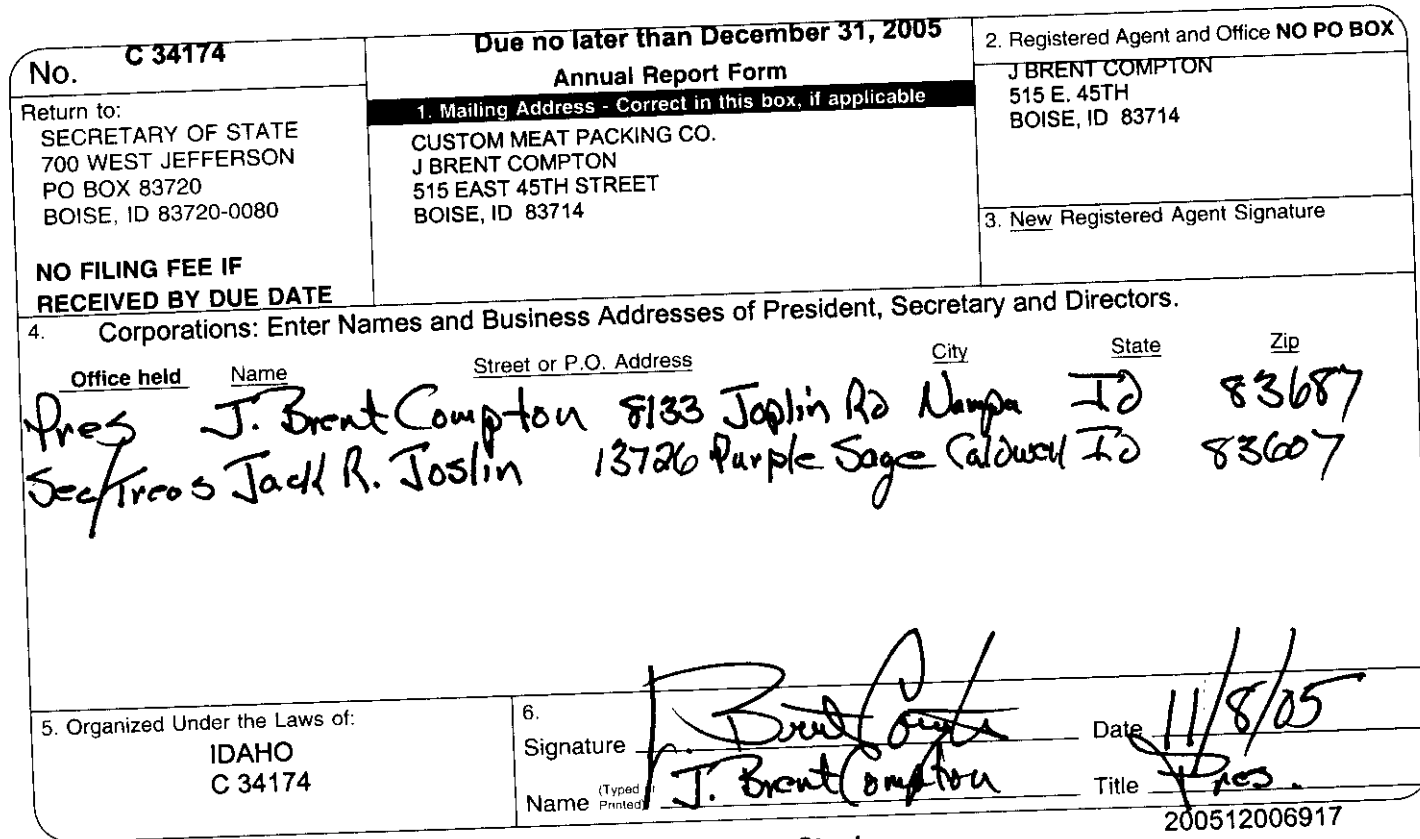 No. C 34174
Return to:
SECRETARY OF STATE
700 WEST JEFFERSON
PO BOX 83720
BOISE, ID 83720-0080
NO FILING FEE IF
RECEIVED BY DUE DATE
Due no later than December 31, 2005
Annual Report Form
1. Mailing Address - Correct in this box, if applicable
CUSTOM MEAT PACKING CO.
J BRENT COMPTON
515 EAST 45TH STREET
BOISE, ID 83714
2. Registered Agent and Office NO PO BOX
J BRENT COMPTON
515 E. 45TH
BOISE, ID 83714
3. New Registered Agent Signature
4. Corporations: Enter Names and Business Addresses of President, Secretary and Directors.
Office held Name Street or P.O. Address City State Zip
Pres J. Brent Compton 8133 Joplin Rd Nampa Id 83687
Sec/Treas Jack R. Joslin 13726 Purple Sage Caldwell Id 83607
5. Organized Under the Laws of:
IDAHO
C 34174
6.
Signature J. Brent Compton Date 11/8/05
Name (Typed Printed) J. Brent Compton Title Pres.
200512006917